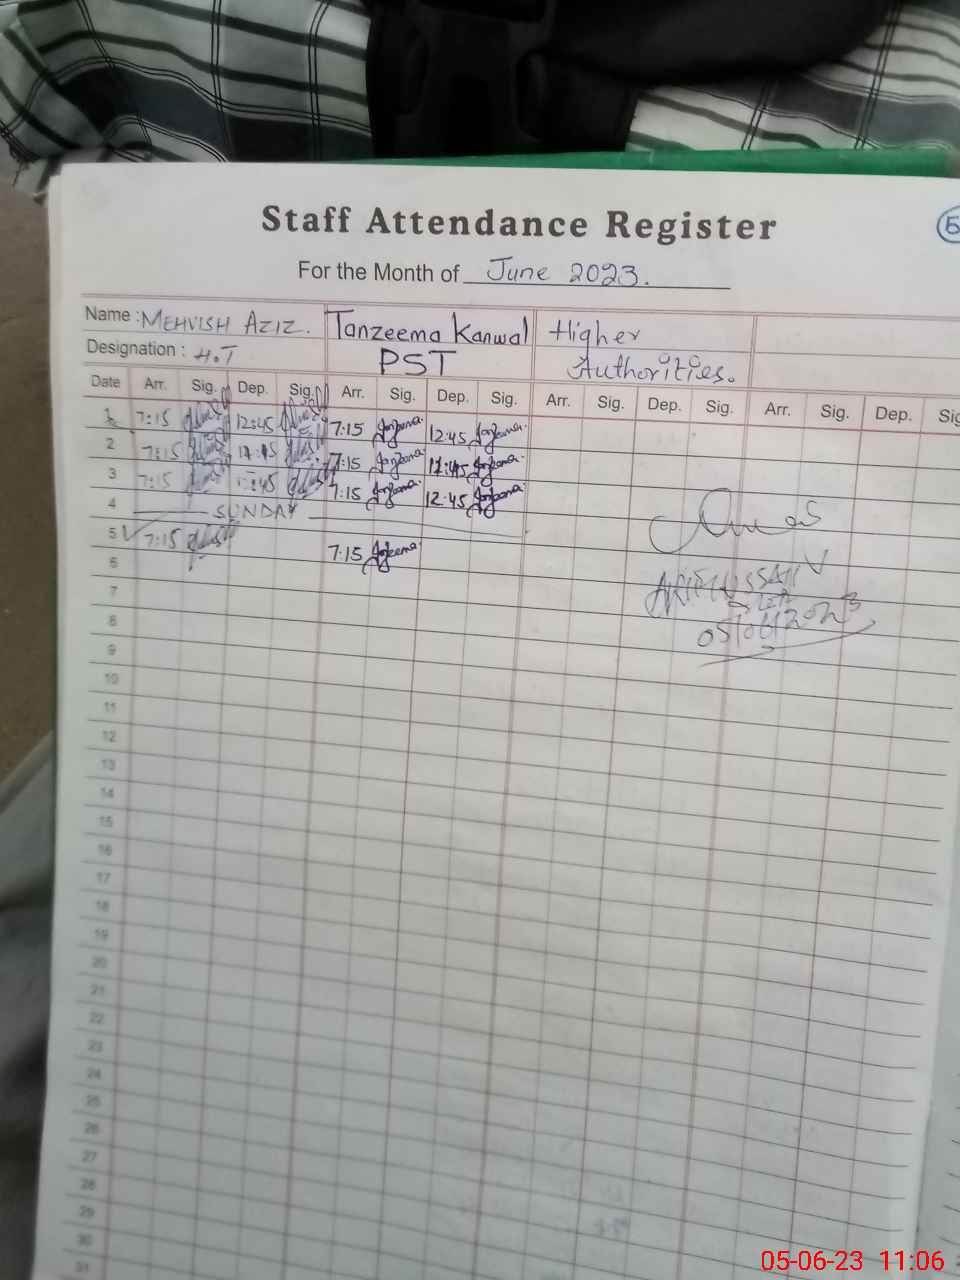 Staff Attendance Register
5
For the Month of June 2023.
Name : MEHVISH AZIZ. Tanzeema Kanwal Higher
Designation : H.T PST Authorities.
Date Arr. Sig. Dep. Sig. Arr. Sig. Dep. Sig. Arr. Sig. Dep. Sig. Arr. Sig. Dep. Sig
1 7:15 12:45 7:15 12:45
2 7:15 7:15
3 7:15 7:15 12:45
4 SUNDAY
5 7:15 7:15
6
7
8
05/06/2023
9
10
11
12
13
14
15
16
17
18
19
20
21
22
23
24
25
26
27
28
29
30
31
05-06-23 11:06